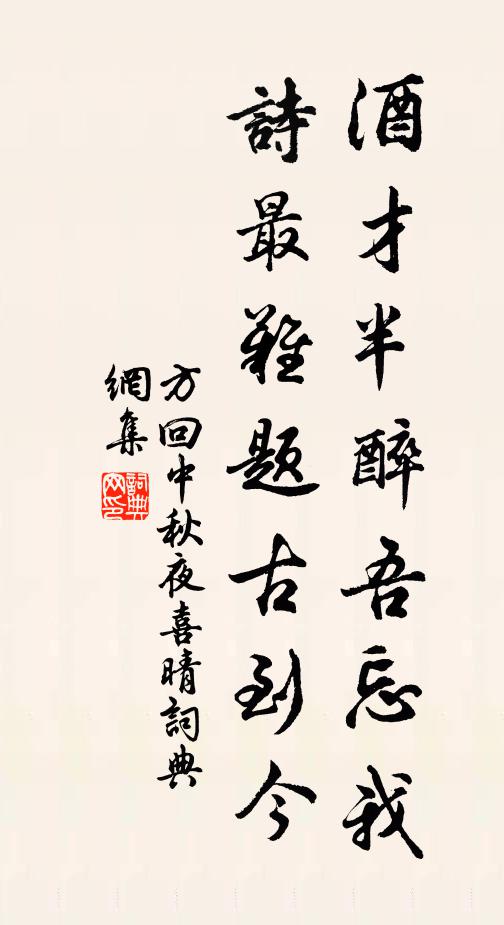 酒才半醉吾忘我
詩最難題古到今
方回中秋夜喜晴詞典
網集
詞典
网印